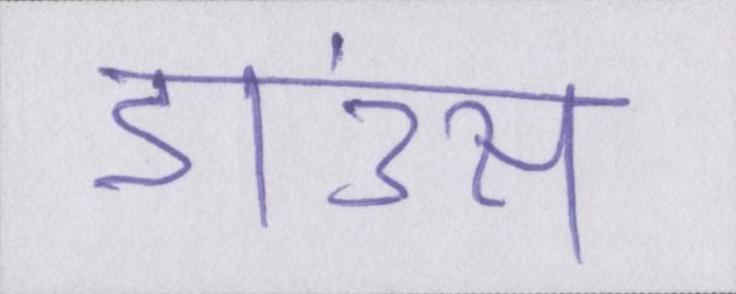 डाउंस